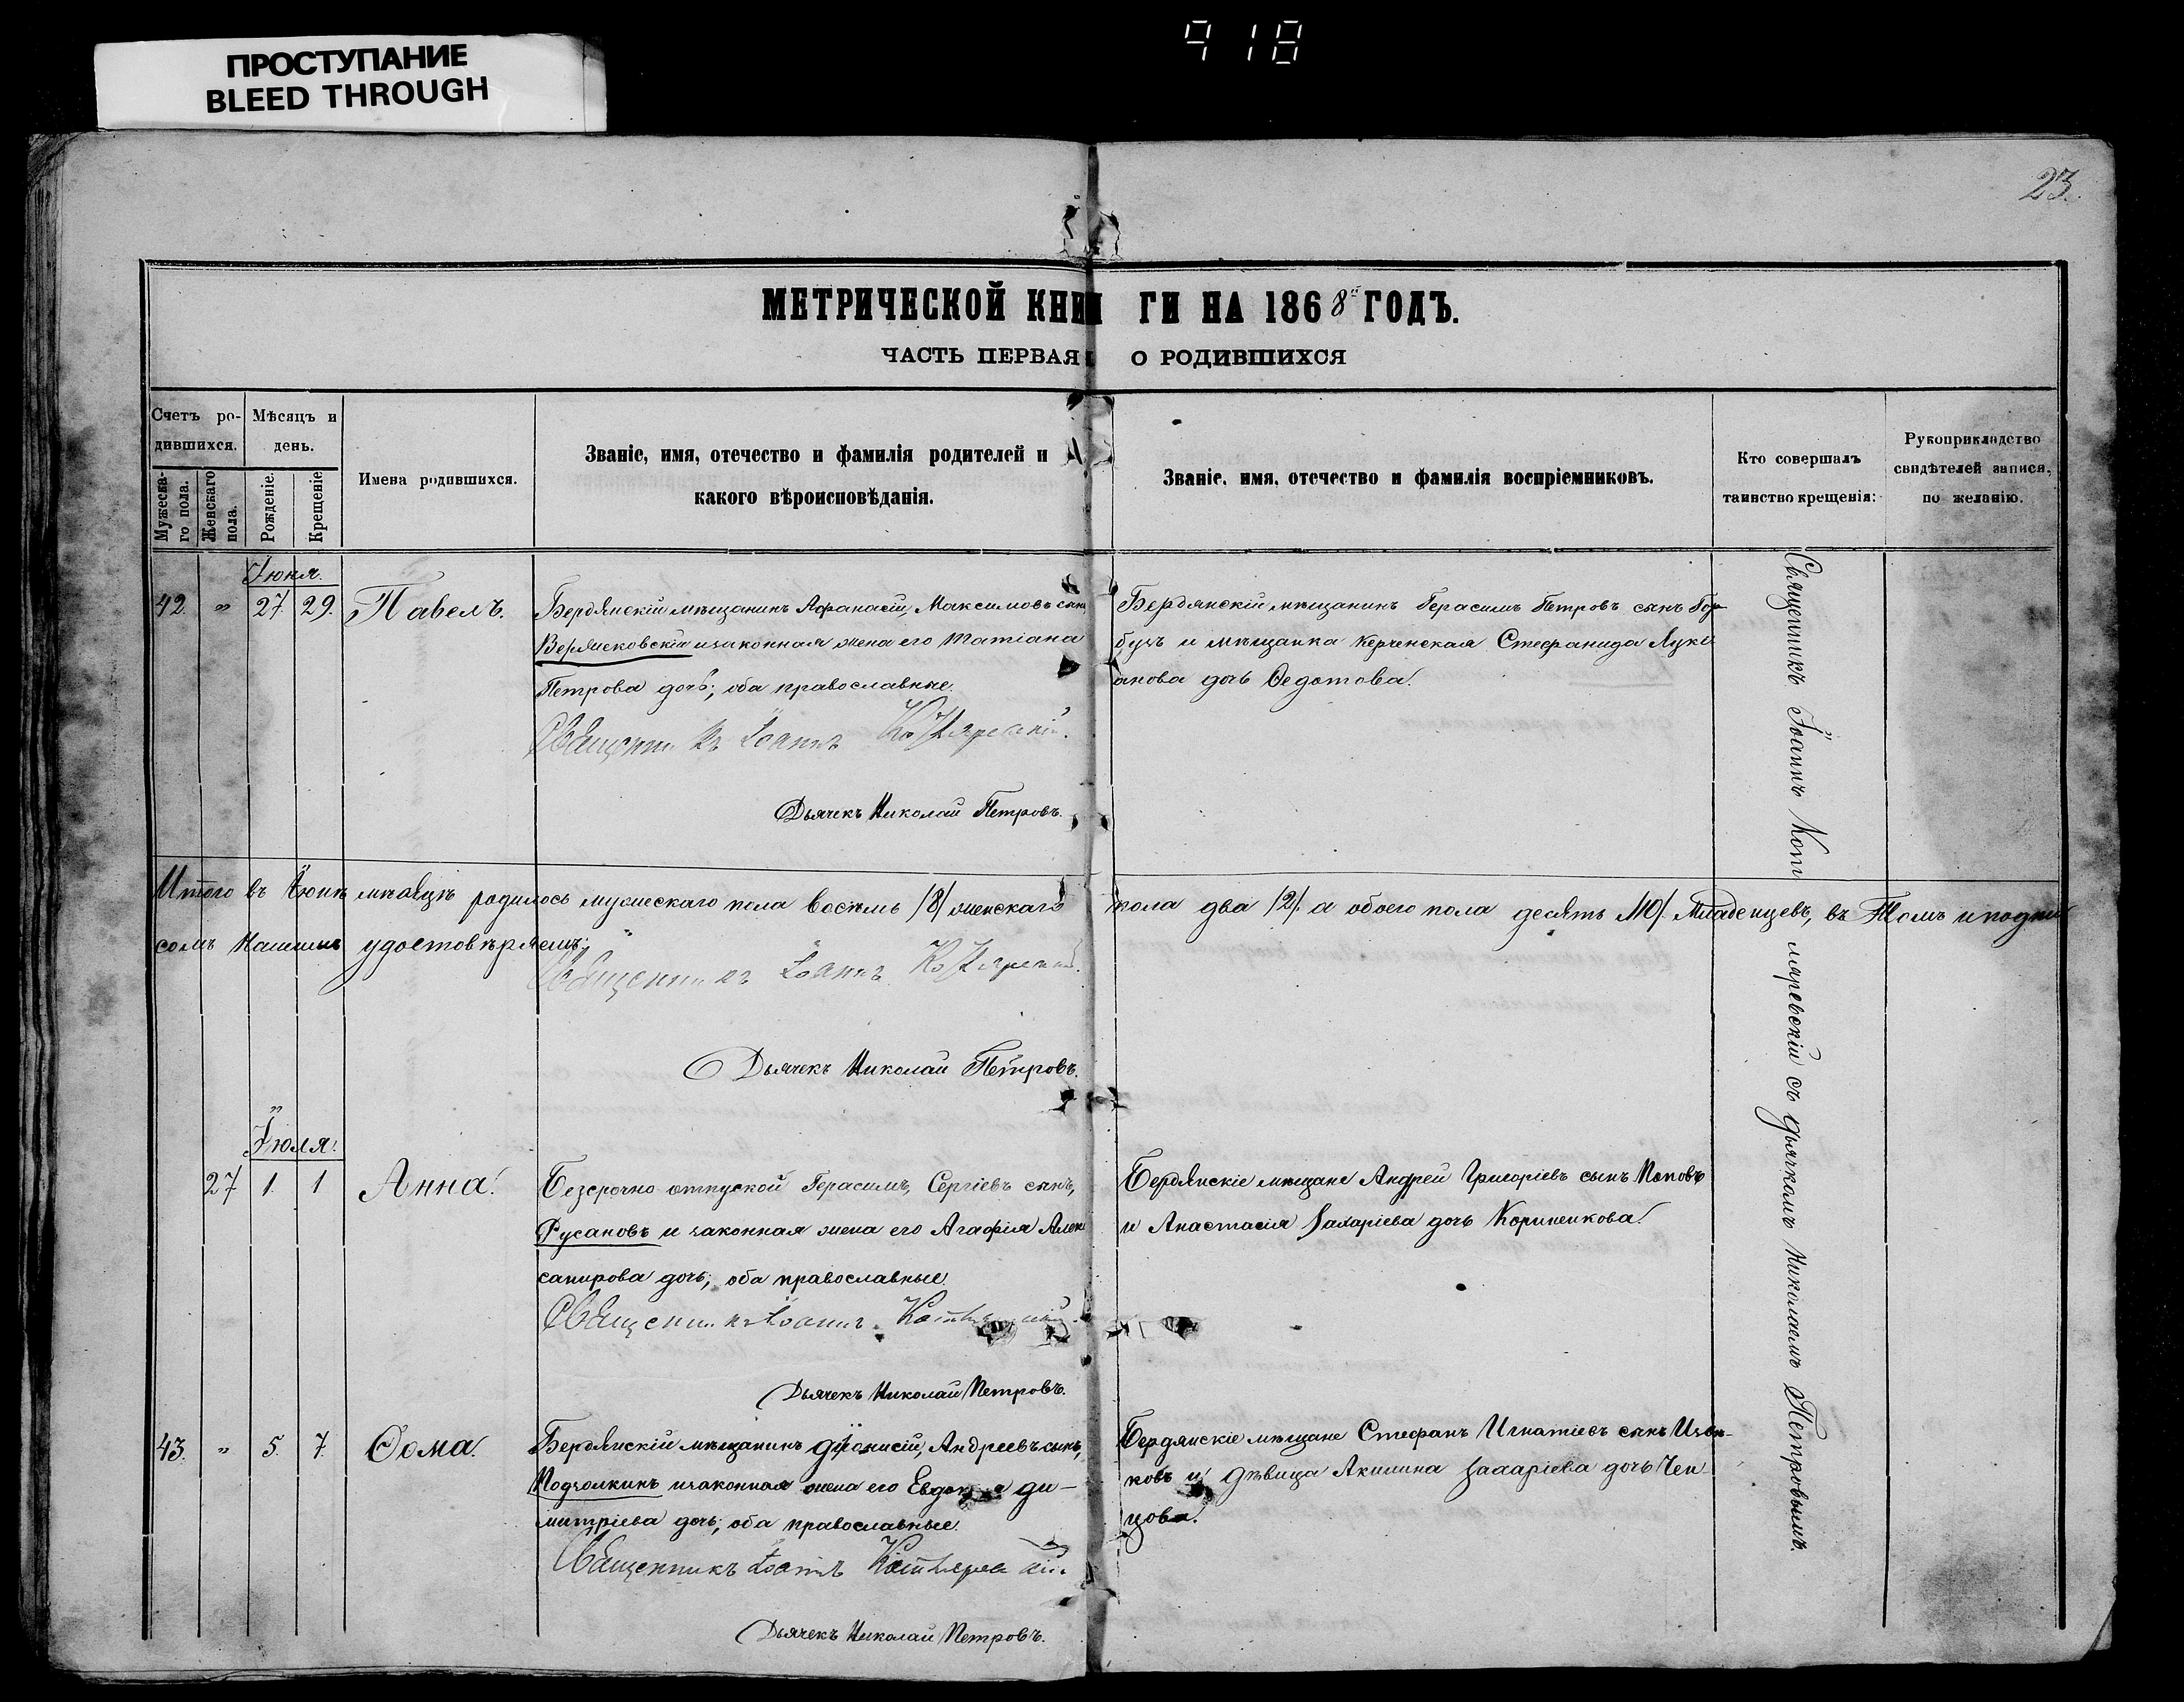 918
ПРОСТУПАНИЕ
BLEED THROUGH
23.
МЕТРИЧЕСКОЙ КНИ ГИ НА 1868й ГОДЪ.
ЧАСТЬ ПЕРВАЯ О РОДИВШИХСЯ
Счетъ ро-
дившихся.
Мужеска-
го пола.
Женскаго
пола.
Мѣсяцъ и
день.
Рожденіе.
Крещеніе
Имена родившихся.
Званіе, имя, отечество и фамилія родителей и
какого вѣроисповѣданія.
Званіе, имя, отечество и фамилія воспріемниковъ.
Кто совершалъ
таинство крещенія:
Рукоприкладство
свидѣтелей записи,
по желанію.
Іюня.
42. " 27. 29. Павелъ.
Бердянскій мѣщанинъ Афанасій, Максимовъ сынъ
и законная жена его Татіана
Петрова дочь; оба православные.
Священникъ Іоаннъ Котляревскій.
Дьячекъ Николай Петровъ.
Бердянскій мѣщанинъ Герасимъ Петровъ сынъ Гор-
бучъ и мѣщанка Керченская Стефанида Луки-
анова дочь Ѳедотова.
Итого въ Іюнѣ мѣсяцѣ родилось мужескаго пола восемь /8/ женскаго пола два /2/. а обоего пола десять /10/. Младенцевъ, въ томъ и подпи
сомъ Нашимъ удостовѣряемъ;
Священникъ Іоаннъ Котляревскій.
Дьячекъ Николай Петровъ.
Іюля.
27 1. 1 Анна.
Безсрочно отпускной Герасимъ, Сергіевъ сынъ,
Русановъ и законная жена его Агафія Алек
сандрова дочь; оба православные.
Священникъ Іоаннъ
Дьячекъ Николай Петровъ.
Бердянскіе мѣщане Андрей Григоріевъ сынъ Поповъ
и Анастасія Захаріева дочь Кориненкова.
43. " 5. 7. Ѳома.
Бердянскій мѣщанинъ Діонисій, Андреевъ сынъ,
Подчолкинъ и законная жена его ди-
митріева дочь; оба православные.
Священникъ Іоаннъ Котляревскій.
Дьячекъ Николай Петровъ.
Бердянскіе мѣщане Стефанъ Игнатіевъ сынъ
ковъ и дѣвица Акилина Захаріева дочь Чеп-
цова.
Священникъ Іоаннъ Кот
ляревскій съ дьячкомъ Николаемъ Петровымъ.